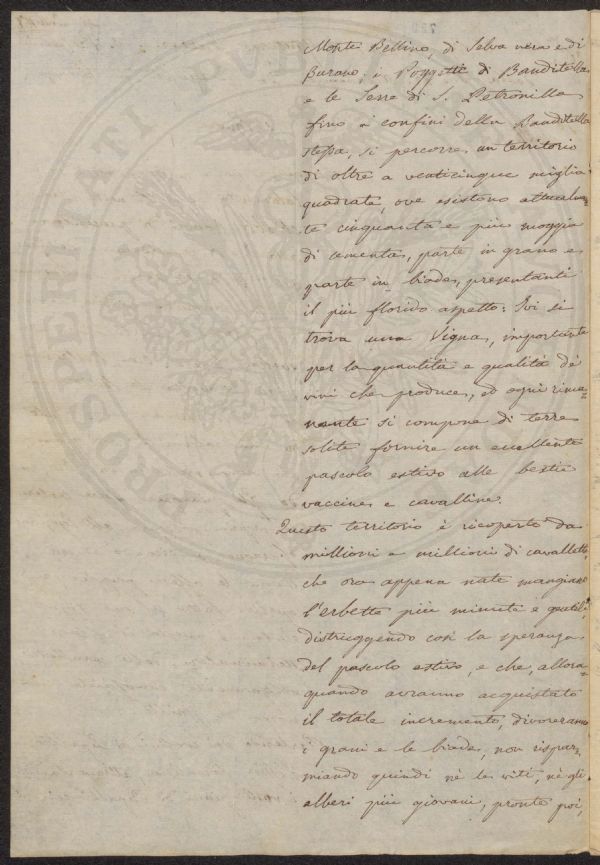 Monte Bellino, di Selva nera e di
Burano, i Poggetti di Banditella
e le Serre di S. Petronilla
fino a' confini della Banditella
stessa, si percorre un territorio
di oltre a venticinque miglia
quadrate, ove esistono attualmen=
te cinquanta e più moggia
di sementa, parte in grano e
parte in biade, presentanti
il più florido aspetto: Ivi si
trova una Vigna, importante
per la quantità e qualità de'
vini che produce, ed ogni rima=
nente si compone di terre
solite fornire un eccellente
pascolo estivo alle bestie
vaccine e cavalline.
Questo territorio è ricoperto da
millioni e millioni di cavallette,
che ora appena nate mangiano
l'erbette più minute e gentili,
distruggendo così la speranza
del pascolo estivo, e che, allora=
quando avranno acquistato
il totale incremento, divoreranno
i grani e le biade, non rispar=
miando quindi nè le viti, nè gli
alberi più giovani, pronte poi,